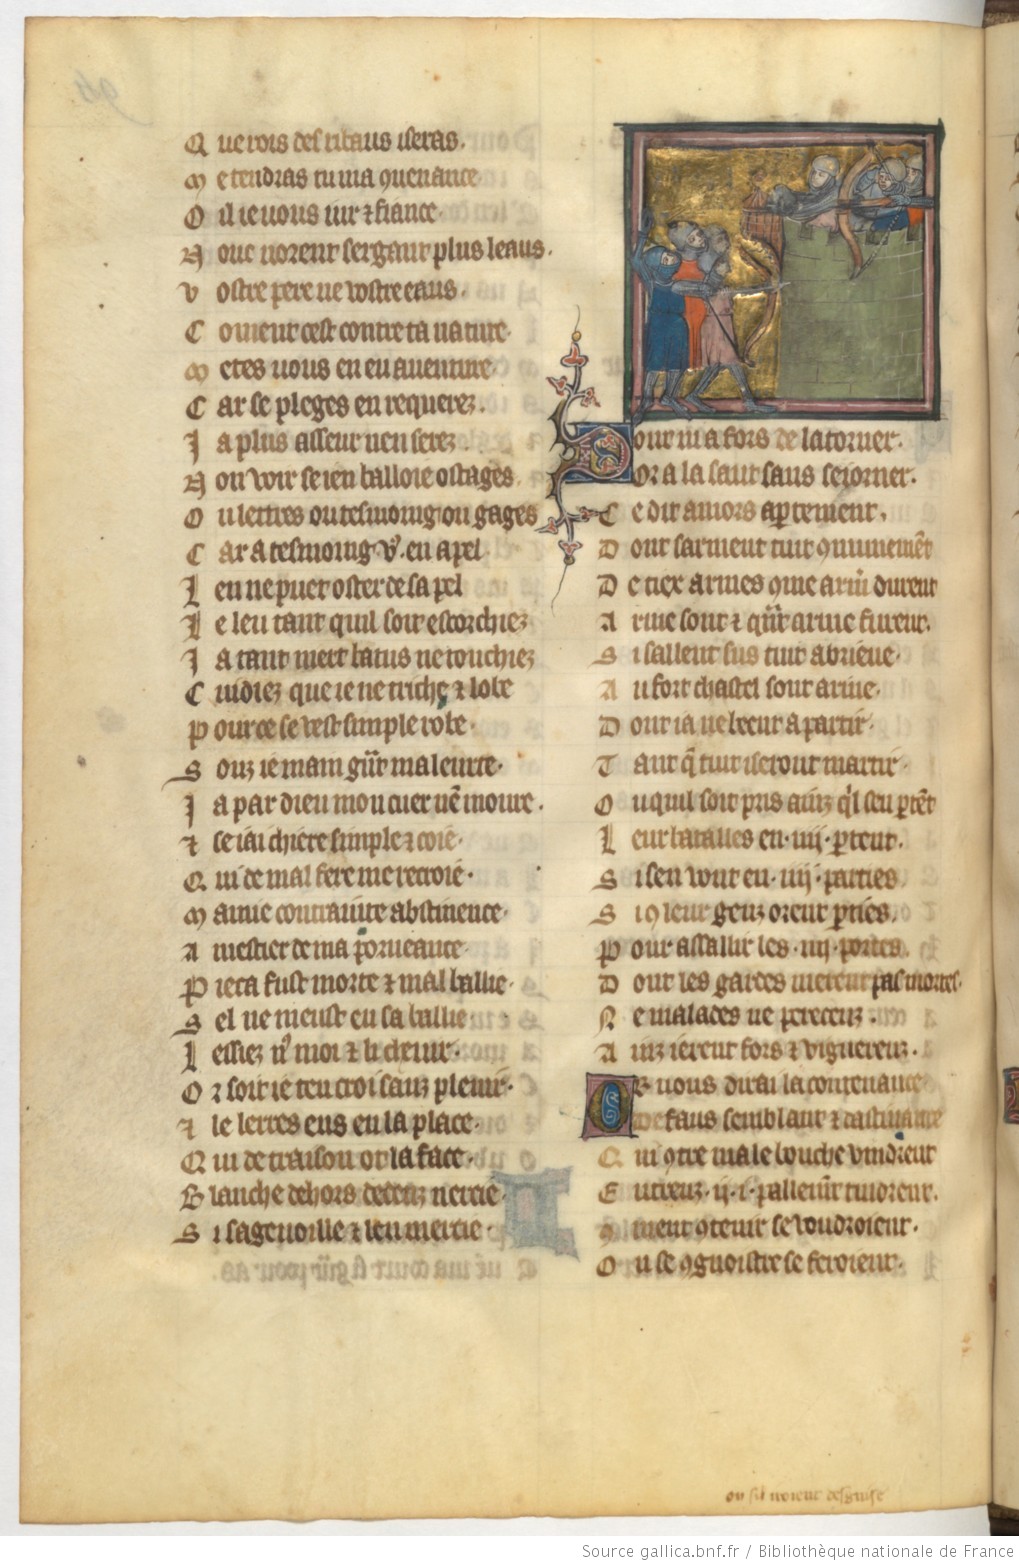 Que rois des ribaus iseras.
Me tendras tu ma 9uenance
Oil ie vous iur ⁊ fiance.
N onc norent sergant plus leaus.
Vostre pere ne vostre eaus.
Coment cest contre ta nature.
Metes vous en en auenture
Car se pleges en requerez.
Ja plus asseur nen serez
Non voir se ien balloie ostages
Ou lettres ou tesmoing ou gages
Car a tesmoing v9. en apel
Len ne puet oster de sa pel
Le leu tant quil soit escorchiez
Ja tant niert batus ne touchiez
Cuidiez que ie ne triche ⁊ lobe
Pour ce se vest simple robe.
Souz ie main g̃nt mal eurte.
Ja par dieu mon cuer nen moure.
⁊ se iai chiere simple ⁊ coie.
Qui de mal fere me recroie.
Mamie contrainte abstinence.
A mestier de ma porueance.
Pieca fust morte ⁊ mal ballie.
Sel ne meust en sa ballie
Lessiez no9 moi ⁊ li cheuir.
Or soit ie ten croi sanz pleuir.
⁊ le lerres ens en la place.
Qui de traison ot la face.
Blanche dehors dedenz nercie.
Si sagenoille ⁊ len mercie.
Dont ni a fors de latorner.
Or a lasaut sans seiorner.
Ce dit amors apertement.
Dont sarment tuit 9munement
De tiex armes 9me armer durent
Arme sont ⁊ quant arme furent.
Si sallent sus tuit abrieue.
Au fort chastel sont arriue.
Dont ia ne beent a partir.
Tant q̃ tuit i seront martir.
Ou quil soit pris ainz qil sen p̃tẽt
Leur batalles en .iiij. p̃tent.
Si sen vont en .iiij. parties.
Si 9 leur genz orent p̃ties.
Pour assallir les .iiij. portes.
Dont les gardes nierent pas mortes.
Ne malades ne pereceuz.
Ainz ierent fors ⁊ viguereuz.
Or vous dirai la contenance
De faus semblant ⁊ dastinance
Qui 9tre male bouche vindrent
Entreuz .ij. .i. pallement tindrent.
Ment 9tenir se voudroient.
Ou se 9gnoistre se feroient.
ou sil noient desguise
Source gallica.bnf.fr / Bibliothèque nationale de France